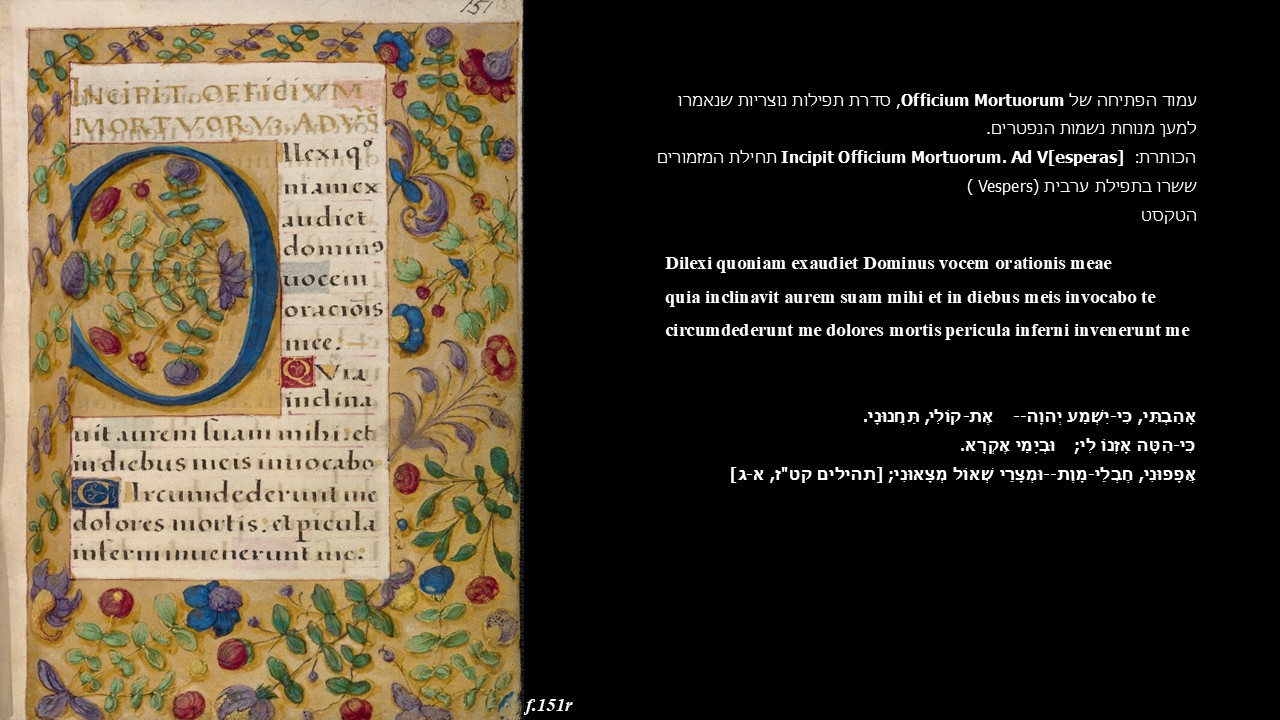 151
INCIPIT OFFICIVM
MORTVORVꝫ AD VS̃
Ilexi qº
niam ex
audiet
dominꝰ
uocem
orationis
mee.
Quia
inclina
uit aurem suam mihi: et
in diebus meis inuocabo
Circumdederunt me
dolores mortis: et picula
inferni inuenerunt me.
f.151r
עמוד הפתיחה של Officium Mortuorum, סדרת תפילות נוצריות שנאמרו
למען מנוחת נשמות הנפטרים.
הכותרת: Incipit Officium Mortuorum. Ad V[esperas] תחילת המזמורים
ששרו בתפילת ערבית (Vespers )
הטקסט
Dilexi quoniam exaudiet Dominus vocem orationis meae
quia inclinavit aurem suam mihi et in diebus meis invocabo te
circumdederunt me dolores mortis pericula inferni invenerunt me
אָהַבְתִּי, כִּי-יִשְׁמַע יְהוָה-- אֶת-קוֹלִי, תַּחֲנוּנָי.
כִּי-הִטָּה אָזְנוֹ לִי; וּבְיָמַי אֶקְרָא.
אֲפָפוּנִי, חֶבְלֵי-מָוֶת--וּמְצָרֵי שְׁאוֹל מְצָאוּנִי; [תהילים קט"ז, א-ג]